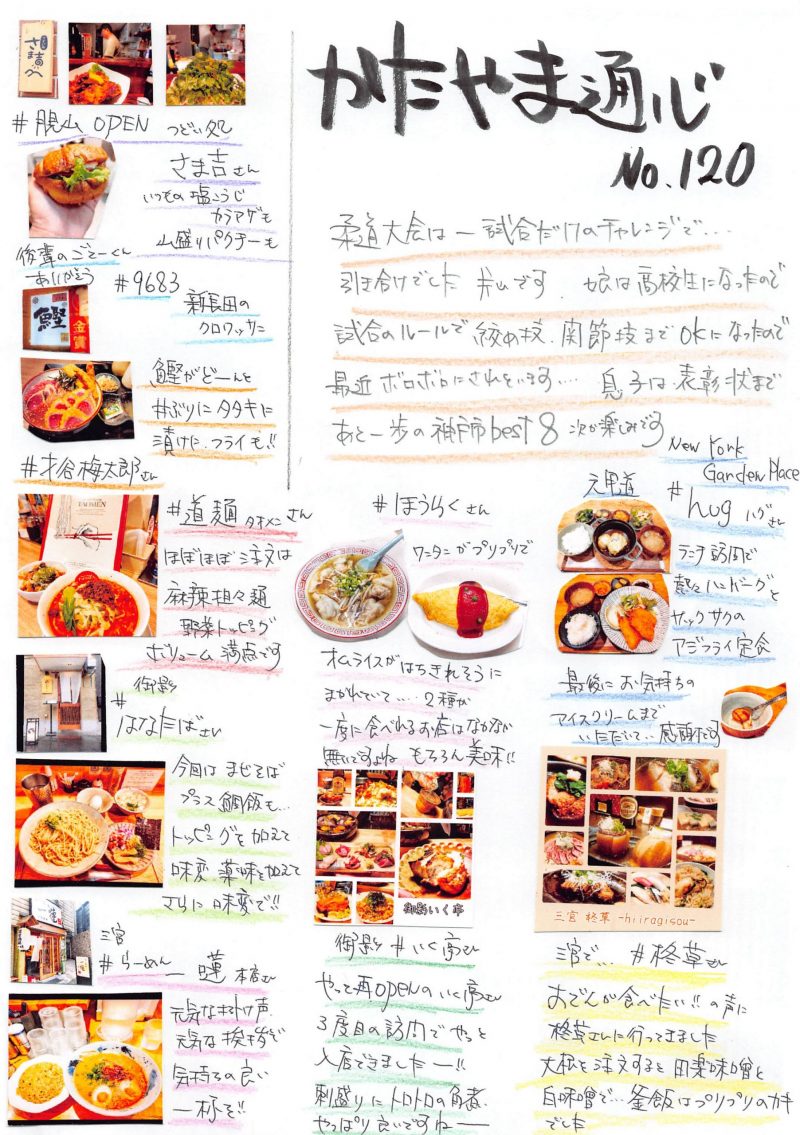 かたやま通心
No.120
柔道大会は一試合だけのチャレンジで…
引き分けでした 片山です、娘は高校生になったので
試合のルールで絞め技、関節技までOKになったので
最近ボロボロにされています…. 息子は表彰状まで
あと一歩の神戸市best8 次が楽しみです
さま吉
#脇山 OPEN つどい処
さま吉さん
いつもの塩こうじ
カラアゲも
山盛りパクチーも
ありがとう
#9683
新長田の
クロワッサニ
鰹
金賞
鰹がどーんと
丼ぶりにタタキに
漬けに、フライも!!
#才谷梅太郎さん
TAOMEN
#道麺 タオメンさん
ほぼほぼ注文は
麻辣担々麺
野菜トッピング
ボリューム満点です
御影
#
はなたばさん
今回はまぜそば
プラス鯛飯も…
トッピングを加えて
味変、薬味を加えて
さらに味変で!!
三宮
#らーめん 蓮 本店さん
元気なかけ声
元気な挨拶で
気持ちの良い
一杯を!!
#ほうらくさん
ワンタンがプリプリで
オムライスがはちきれそうに
まかれていて…. 2種が
一度に食べれるお店はなかなか
無いですよね もちろん美味!!
New York
Garden Place
元町道
#hug ハグさん
ランチ訪問で
熱々ハンバーグと
サックサクの
アジフライ定食
最後にお気持ちの
アイスクリームまで
いただいて… 感謝です
御影いく亭
御影 #いく亭さん
やっと再openのいく亭さん
3度目の訪問でやっと
入店できましたー!!
刺盛りにトロトロの角煮、
やっぱり良いですねー
三宮 柊草 -hiiragisou-
三宮で… #柊草さん
おでんが食べたい!!の声に
柊草さんに行ってきました
大根を注文すると田楽味噌と
白味噌で… 釜飯はプリプリのカキ
でした